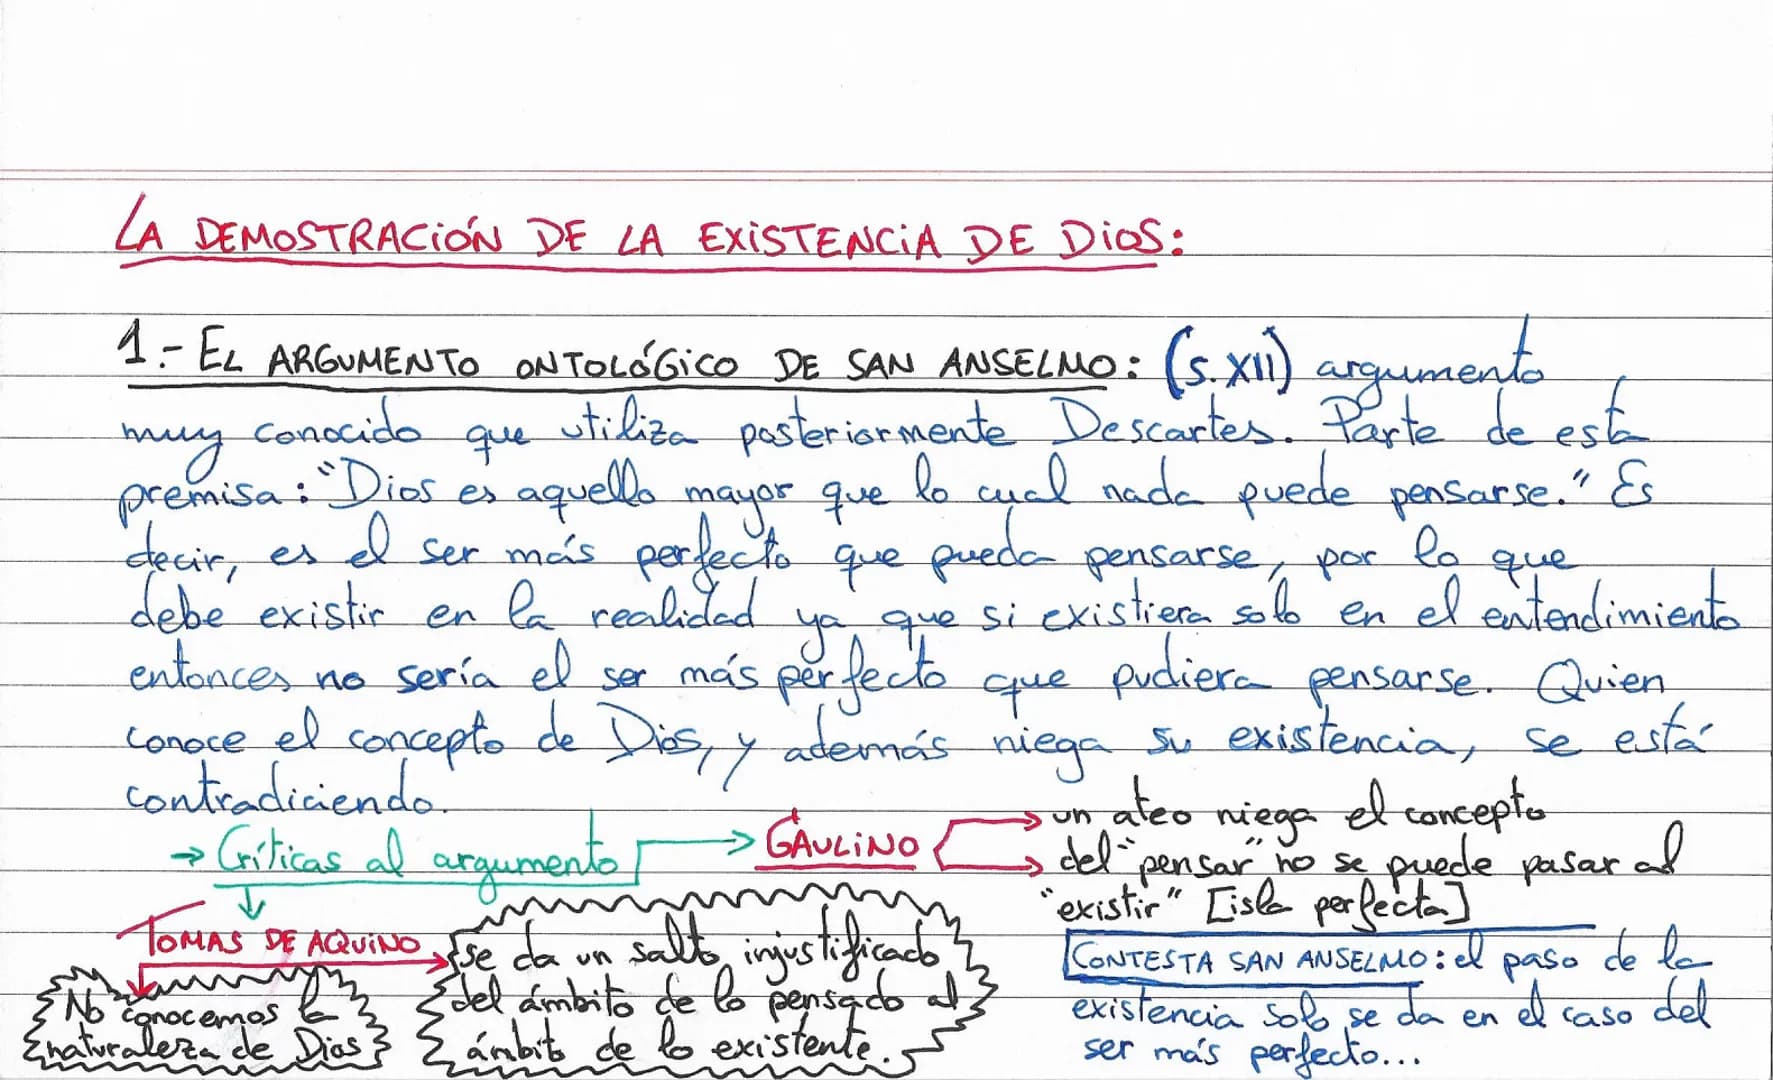 LA DEMOSTRACIÓN DE LA EXISTENCIA DE DIOS:
1.- EL ARGUMENTO ONTOLÓGICO DE SAN ANSELMO: (s. XII) argumento
muy conocido que utiliza posteriormente Descartes. Parte de esta
premisa: "Dios es aquello mayor que lo cual nada puede pensarse." Es
decir, es el ser más perfecto que pueda pensarse, por lo que
debe existir en la realidad ya que si existiera solo en el entendimiento
entonces no sería el ser más perfecto que pudiera pensarse. Quien
conoce el concepto de Dios, y además niega su existencia, se está
contradiciendo.
→ Críticas al argumento → GAULINO → un ateo niega el concepto
→ del "pensar" no se puede pasar al
"existir" [isla perfecta]
TOMAS DE AQUINO
se da un salto injustificado
del ámbito de lo pensado al
ámbito de lo existente.
No conocemos la
naturaleza de Dios
CONTESTA SAN ANSELMO: el paso de la
existencia solo se da en el caso del
ser más perfecto...